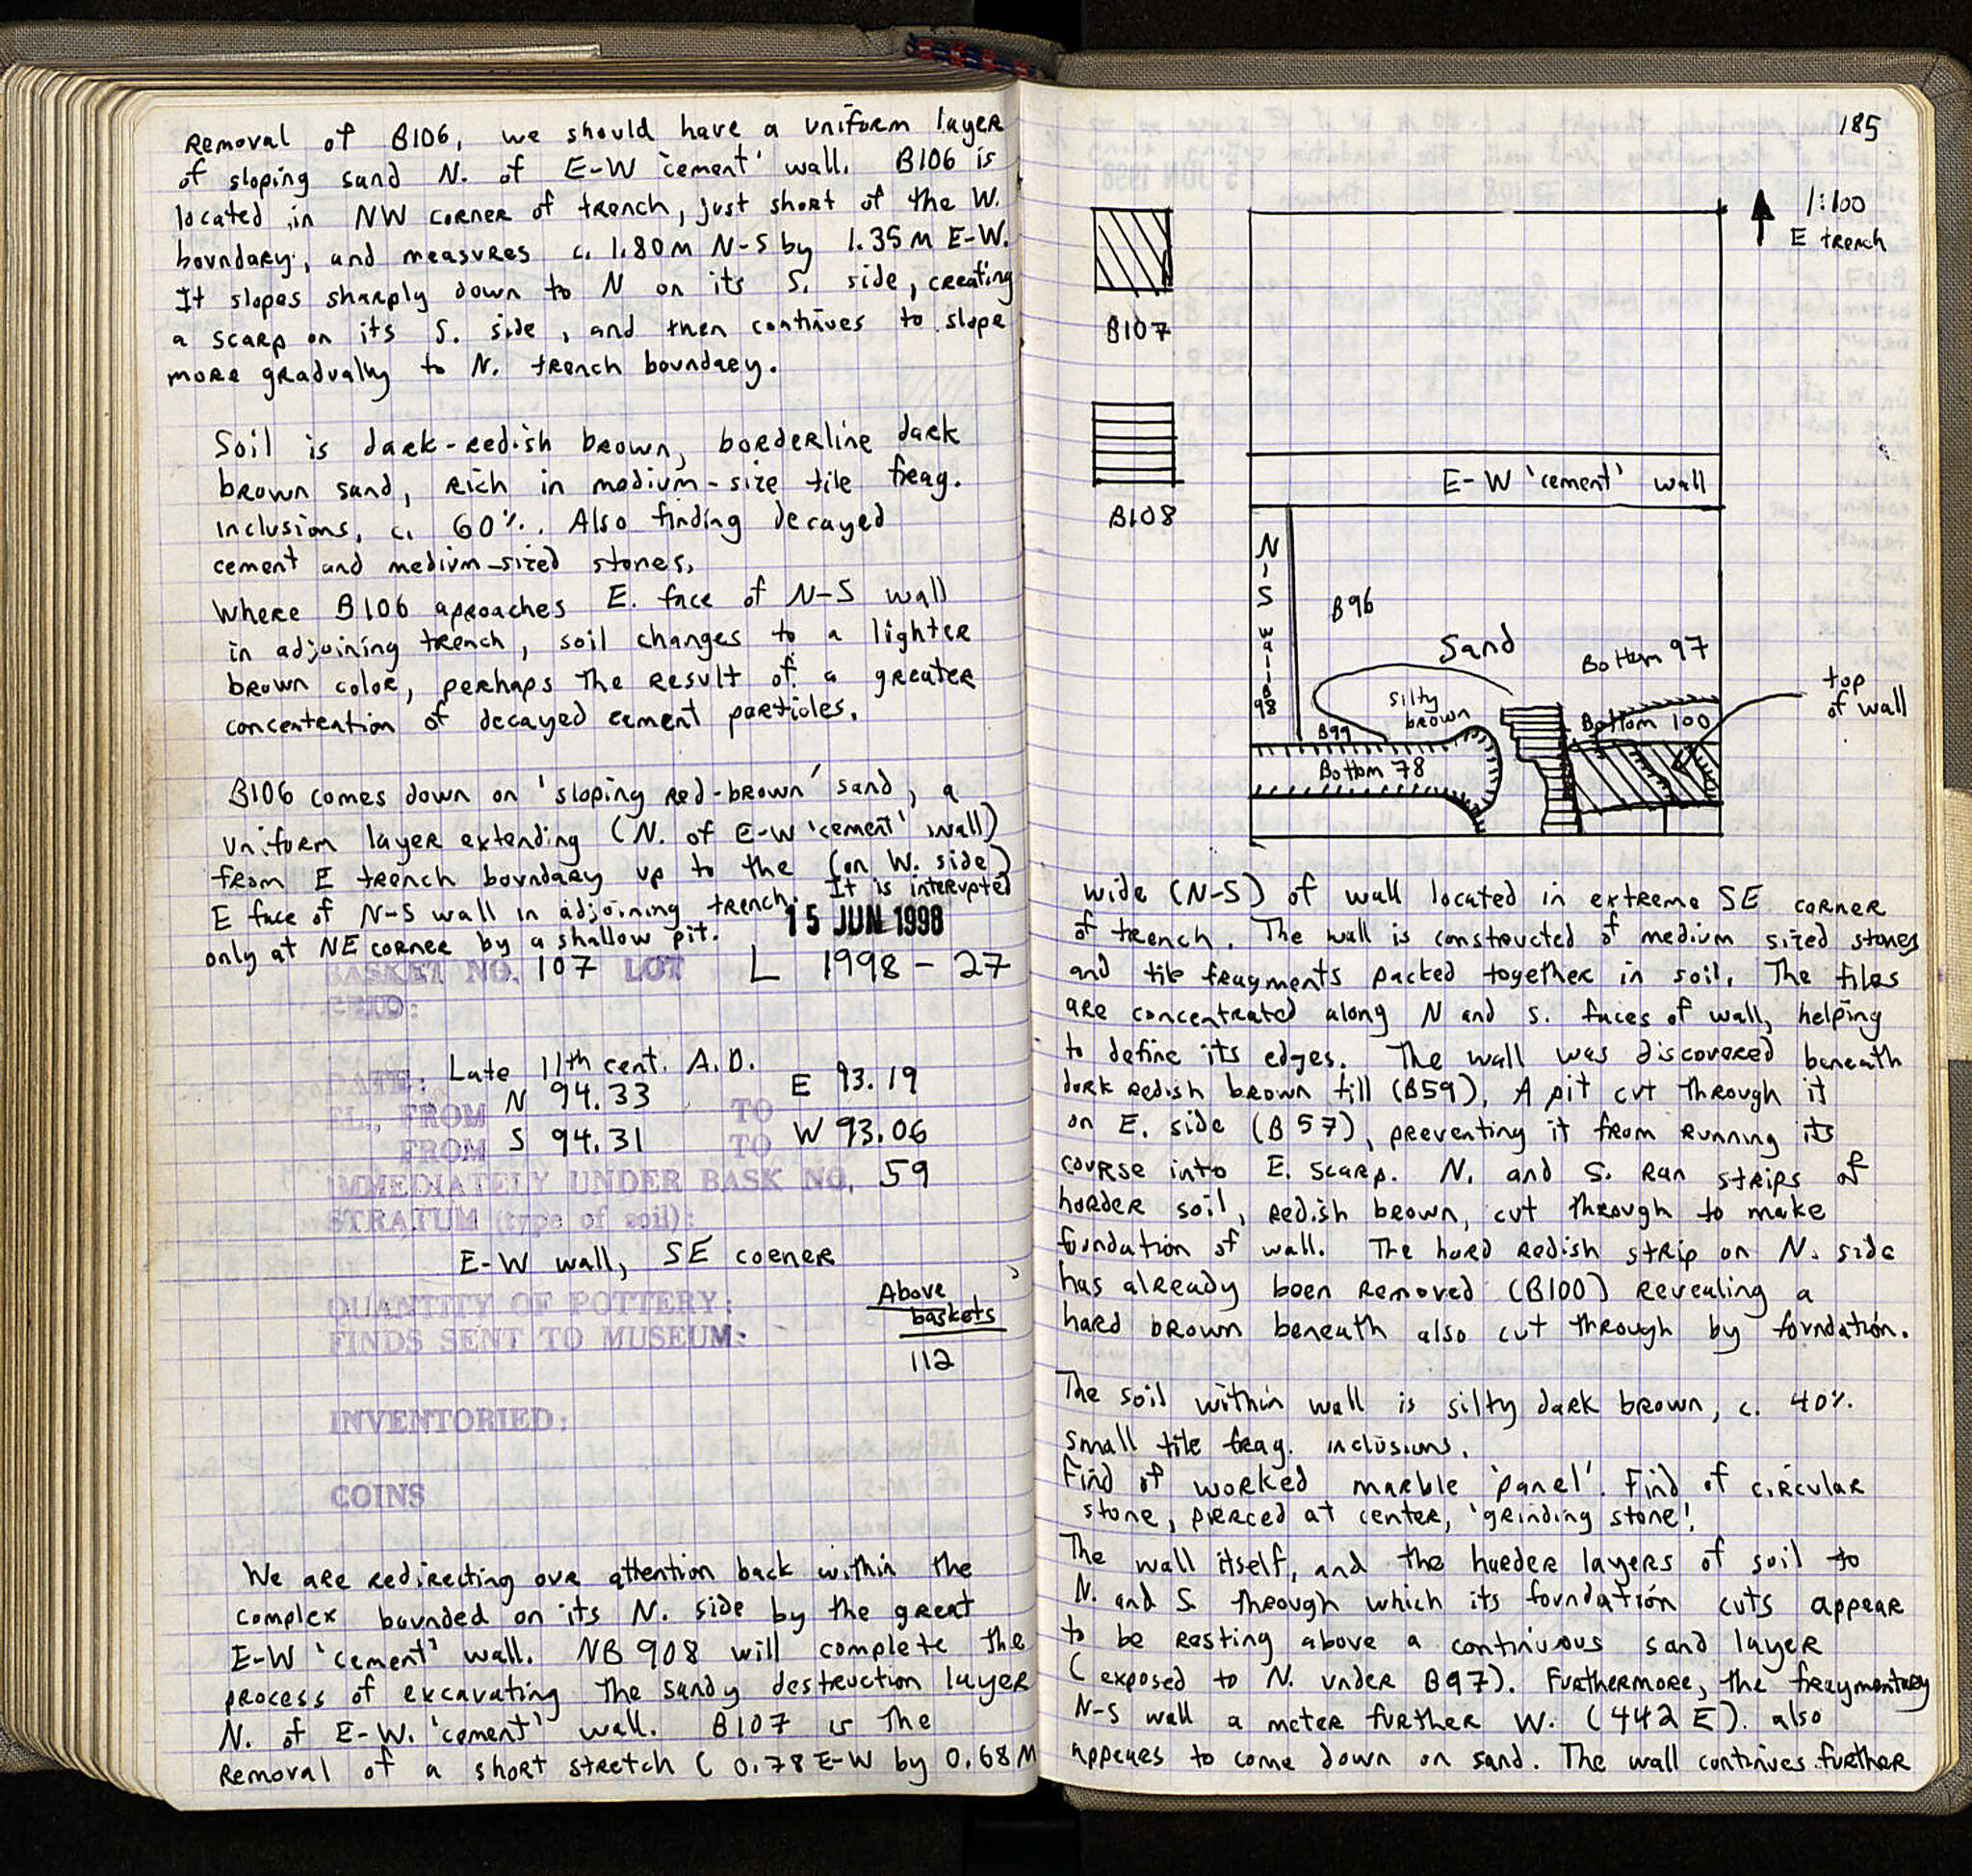 Removal of B106, we should have a uniform layer
of sloping sand N. of E-W 'cement' wall. B106 is
located in NW corner of trench, just short of the W.
boundary, and measures c. 1.80m N-S by 1.35m E-W.
It slopes sharply down to N on its S. side, creating
a scarp on its S. side, and then continues to slope
more gradually to N. trench boundary.
Soil is dark-redish brown, borderline dark
brown sand, rich in medium-size tile frag.
inclusions, c. 60%. Also finding decayed
cement and medium-sized stones.
Where B106 aproaches E. face of N-S wall
in adjoining trench, soil changes to a lighter
brown color, perhaps the result of a greater
concentration of decayed cement particles.
B106 comes down on 'sloping red-brown' sand, a
uniform layer extending (N. of E-W 'cement' wall)
from E trench boundary up to the (on W. side)
E face of N-S wall in adjoining trench. It is interupted
only at NE corner by a shallow pit.
15 JUN 1998
BASKET NO. 107 LOT L 1998-27
GRID:
DATE: Late 11th cent. A.D.
EL., FROM N 94.33 TO E 93.19
FROM S 94.31 TO W 93.06
IMMEDIATELY UNDER BASK NO. 59
STRATUM (type of soil):
E-W wall, SE corner
QUANTITY OF POTTERY:
FINDS SENT TO MUSEUM:
Above
baskets
112
INVENTORIED:
COINS
We are redirecting our attention back within the
complex bounded on its N. side by the great
E-W 'cement' wall. NB 908 will complete the
process of excavating the sandy destruction layer
N. of E-W. 'cement' wall. B107 is the
removal of a short stretch (0.78 E-W by 0.68M
185
1:100
E trench
B107
B108
E-W 'cement' wall
N-S wall
B98
B96
Sand
Bottom 97
silty
brown
top
of wall
B99
Bottom 100
Bottom 78
wide (N-S) of wall located in extreme SE corner
of trench. The wall is constructed of medium sized stones
and tile fragments packed together in soil. The tiles
are concentrated along N and S. faces of wall, helping
to define its edges. The wall was discovered beneath
dark redish brown fill (B59). A pit cut through it
on E. side (B57), preventing it from running its
course into E. scarp. N. and S. ran strips of
harder soil, redish brown, cut through to make
foundation of wall. The hard redish strip on N. side
has already been removed (B100) revealing a
hard brown beneath also cut through by foundation.
The soil within wall is silty dark brown, c. 40%.
small tile frag. inclusions.
Find of worked marble 'panel'. Find of circular
stone, pierced at center, 'grinding stone'.
The wall itself, and the harder layers of soil to
N. and S. through which its foundation cuts appear
to be resting above a continuous sand layer
(exposed to N. under B97). Furthermore, the fragmentary
N-S wall a meter further W. (442 E). also
appears to come down on sand. The wall continues further